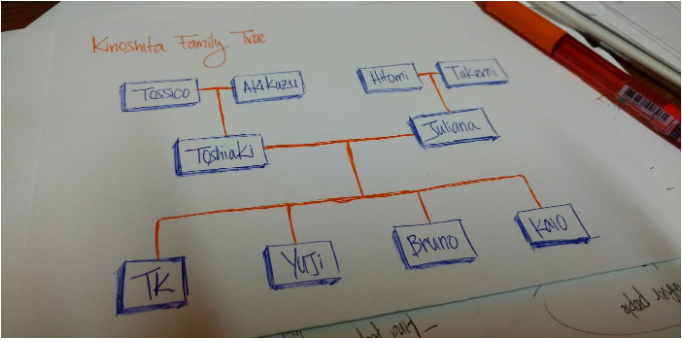 Kinoshita Family Tree
Tossico Akikazu Hitomi Takemi
Toshiaki Juliana
TK Yuji Bruno Kaio